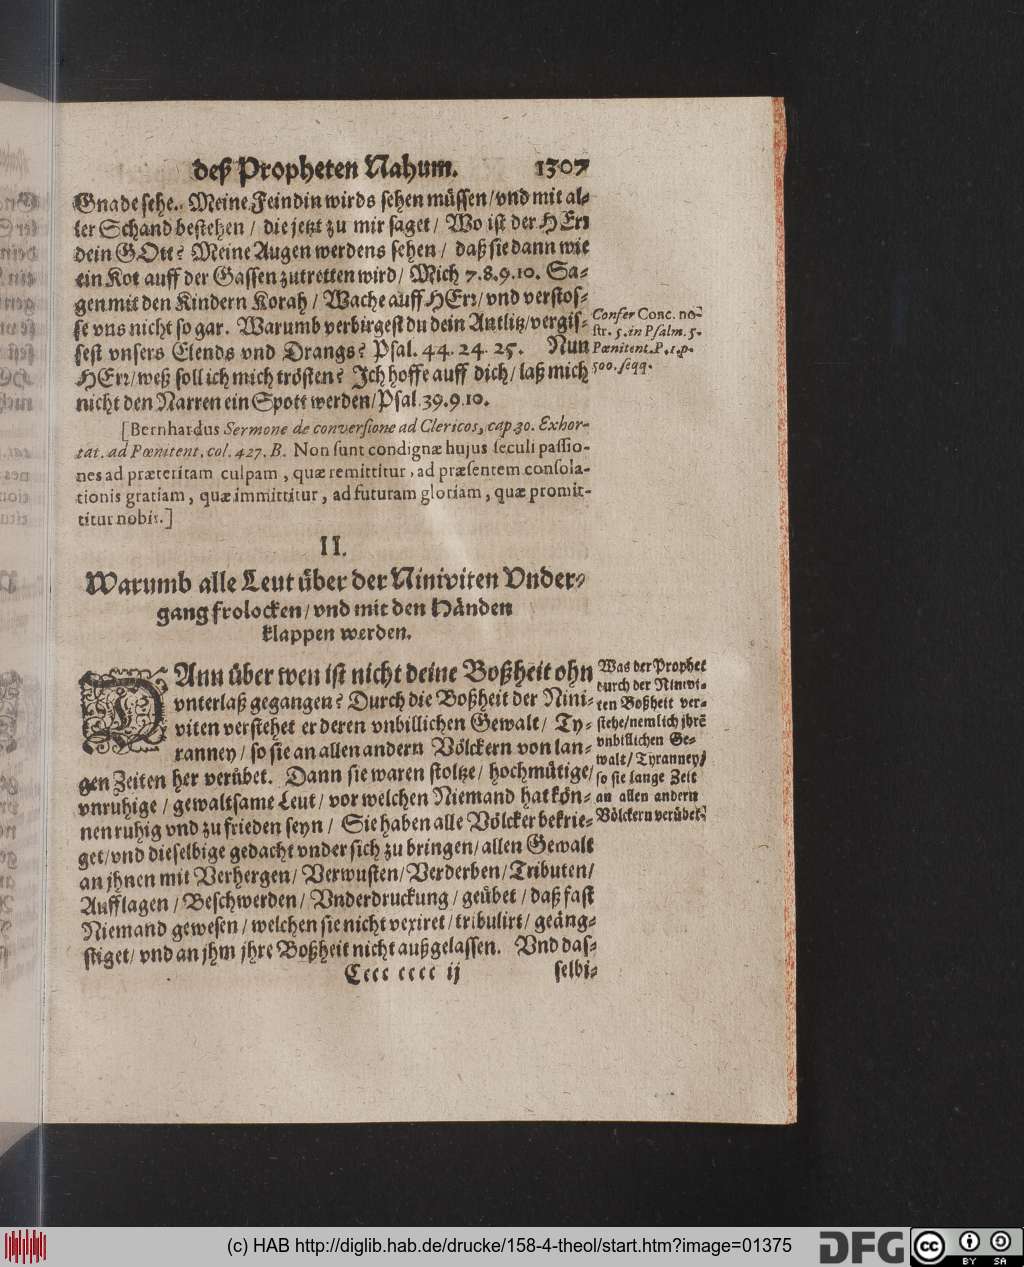 deß Propheten Nahum. 1307
Gnade sehe. Meine Feindin wirds sehen müssen/vnd mit al-
ler Schand bestehen / die jetzt zu mir saget / Wo ist der HErꝛ
dein GOtt? Meine Augen werdens sehen / daß sie dann wie
ein Kot auff der Gassen zutretten wird/ Mich 7.8.9.10. Sa-
gen mit den Kindern Korah / Wache auff HErꝛ/ vnd verstos-
se vns nicht so gar. Warumb verbirgest du dein Antlitz/vergis-
sest vnsers Elends vnd Drangs? Psal. 44. 24. 25. Nun
HErꝛ/weß soll ich mich trösten? Ich hoffe auff dich/ laß mich
nicht den Narren ein Spott werden/Psal.39.9.10.
Confer Conc. no-
str. 5. in Psalm. 5.
Pœnitent. P. 1. p.
500. seqq.
[Bernhardus Sermone de conversione ad Clericos, cap. 30. Exhor-
tat. ad Pœnitent. col. 427. B. Non sunt condignæ hujus seculi passio-
nes ad præteritam culpam, quæ remittitur, ad præsentem consola-
tionis gratiam, quæ immittitur, ad futuram gloriam, quæ promit-
titur nobis.]
II.
Warumb alle Leut über der Niniviten Vnder-
gang frolocken/ vnd mit den Händen
klappen werden.
DAnn über wen ist nicht deine Boßheit ohn
vnterlaß gegangen? Durch die Boßheit der Nini-
viten verstehet er deren vnbillichen Gewalt/ Ty-
ranney/ so sie an allen andern Völckern von lan-
gen Zeiten her verübet. Dann sie waren stoltze/ hochmütige/
vnruhige / gewaltsame Leut/ vor welchen Niemand hat kön-
nen ruhig vnd zu frieden seyn / Sie haben alle Völcker bekrie-
get/vnd dieselbige gedacht vnder sich zu bringen/ allen Gewalt
an jhnen mit Verhergen/ Verwusten/ Verderben/ Tributen/
Aufflagen / Beschwerden/ Vnderdruckung / geübet / daß fast
Niemand gewesen / welchen sie nicht vexiret / tribulirt / geäng-
stiget/ vnd an jhm jhre Boßheit nicht außgelassen. Vnd das-
Was der Prophet
durch der Ninivi-
ten Boßheit ver-
stehe/nemlich jhrē
vnbillichen Ge-
walt/ Tyranney/
so sie lange Zeit
an allen andern
Völckern verübet.
Cccc cccc ij selbi-
(c) HAB http://diglib.hab.de/drucke/158-4-theol/start.htm?image=01375
DFG
cc
BY SA